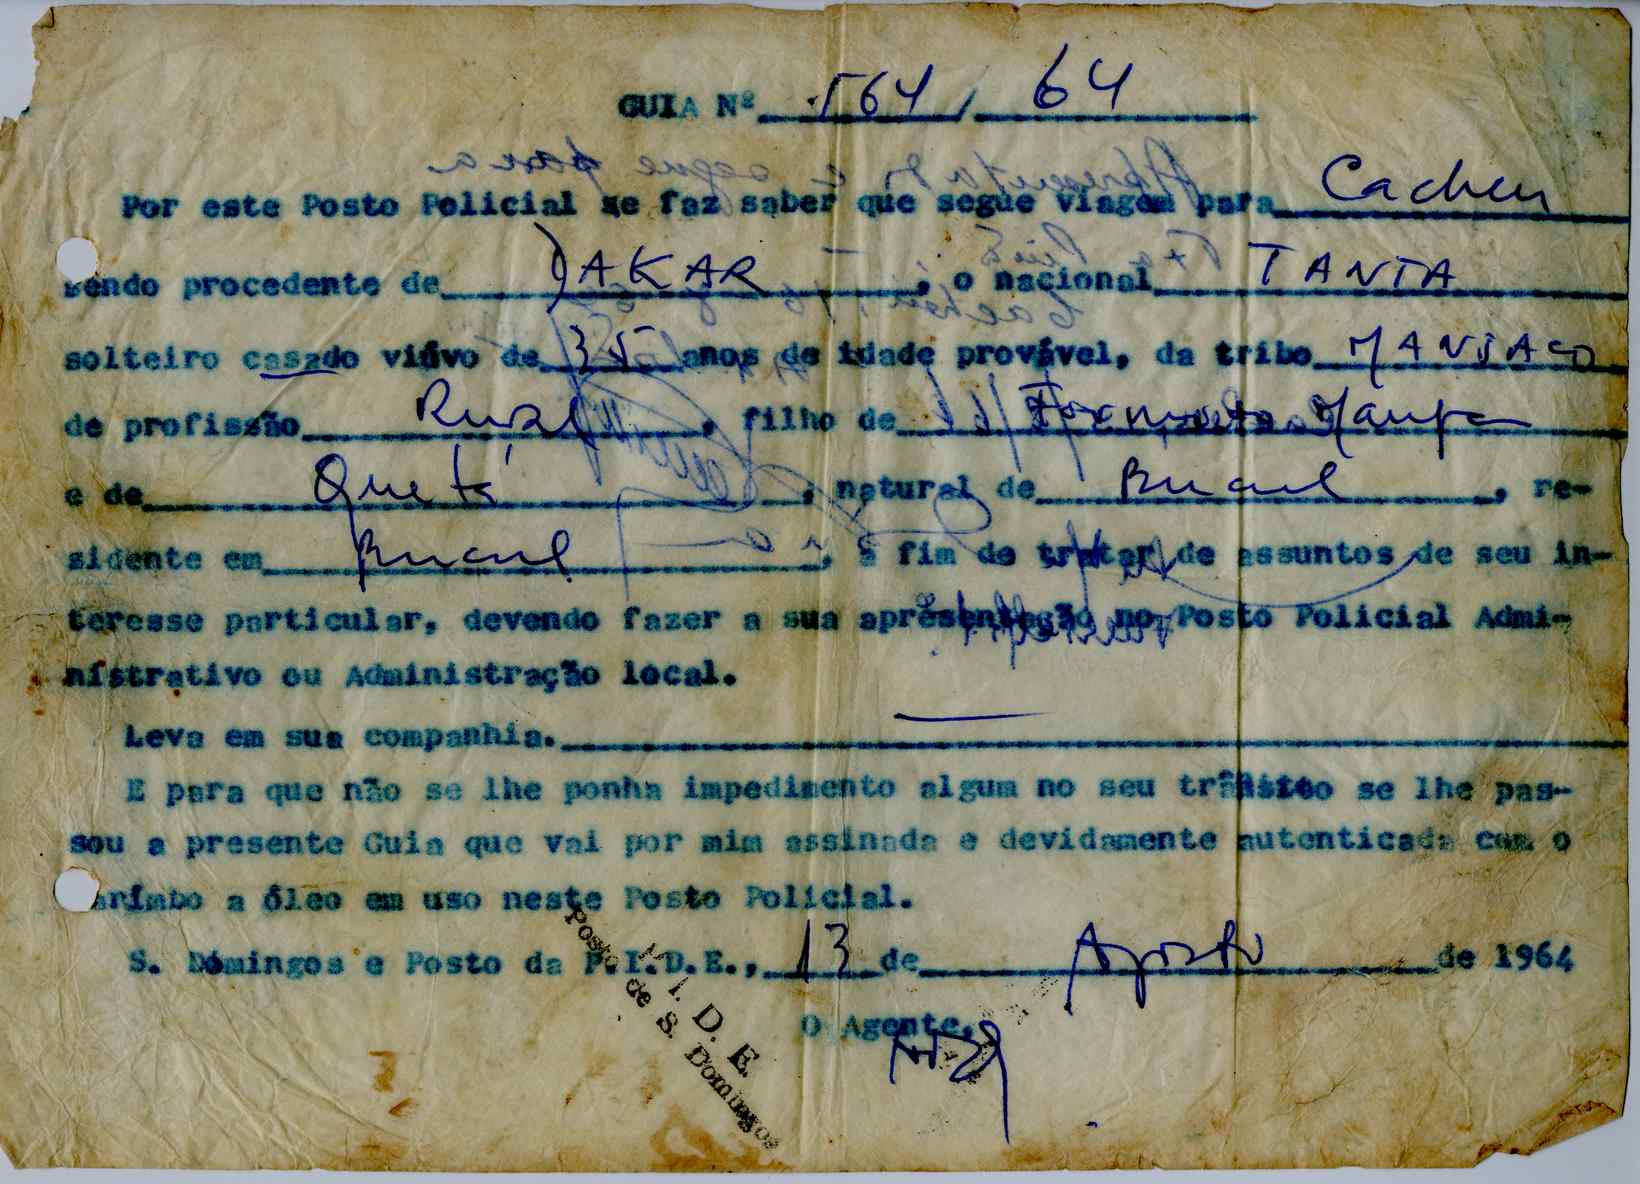 GUIA Nº 564 / 64
Por este Posto Policial se faz saber que segue viagem para Cacheu
sendo procedente de DAKAR, o nacional TANTA
solteiro casado viúvo de 35 anos de idade provável, da tribo MANJACO
de profissão Rural, filho de
e de Quetá, natural de Bucul, re-
sidente em Bucul, a fim de tratar de assuntos de seu in-
teresse particular, devendo fazer a sua apresentação no Posto Policial Admi-
nistrativo ou Administração local.
Leva em sua companhia.
E para que não se lhe ponha impedimento algum no seu trânsito se lhe pas-
sou a presente Guia que vai por mim assinada e devidamente autenticada com o
carimbo a óleo em uso neste Posto Policial.
S. Domingos e Posto da P.I.D.E., 13 de Agosto de 1964
O Agente,
P. I. D. E.
Posto de S. Domingos